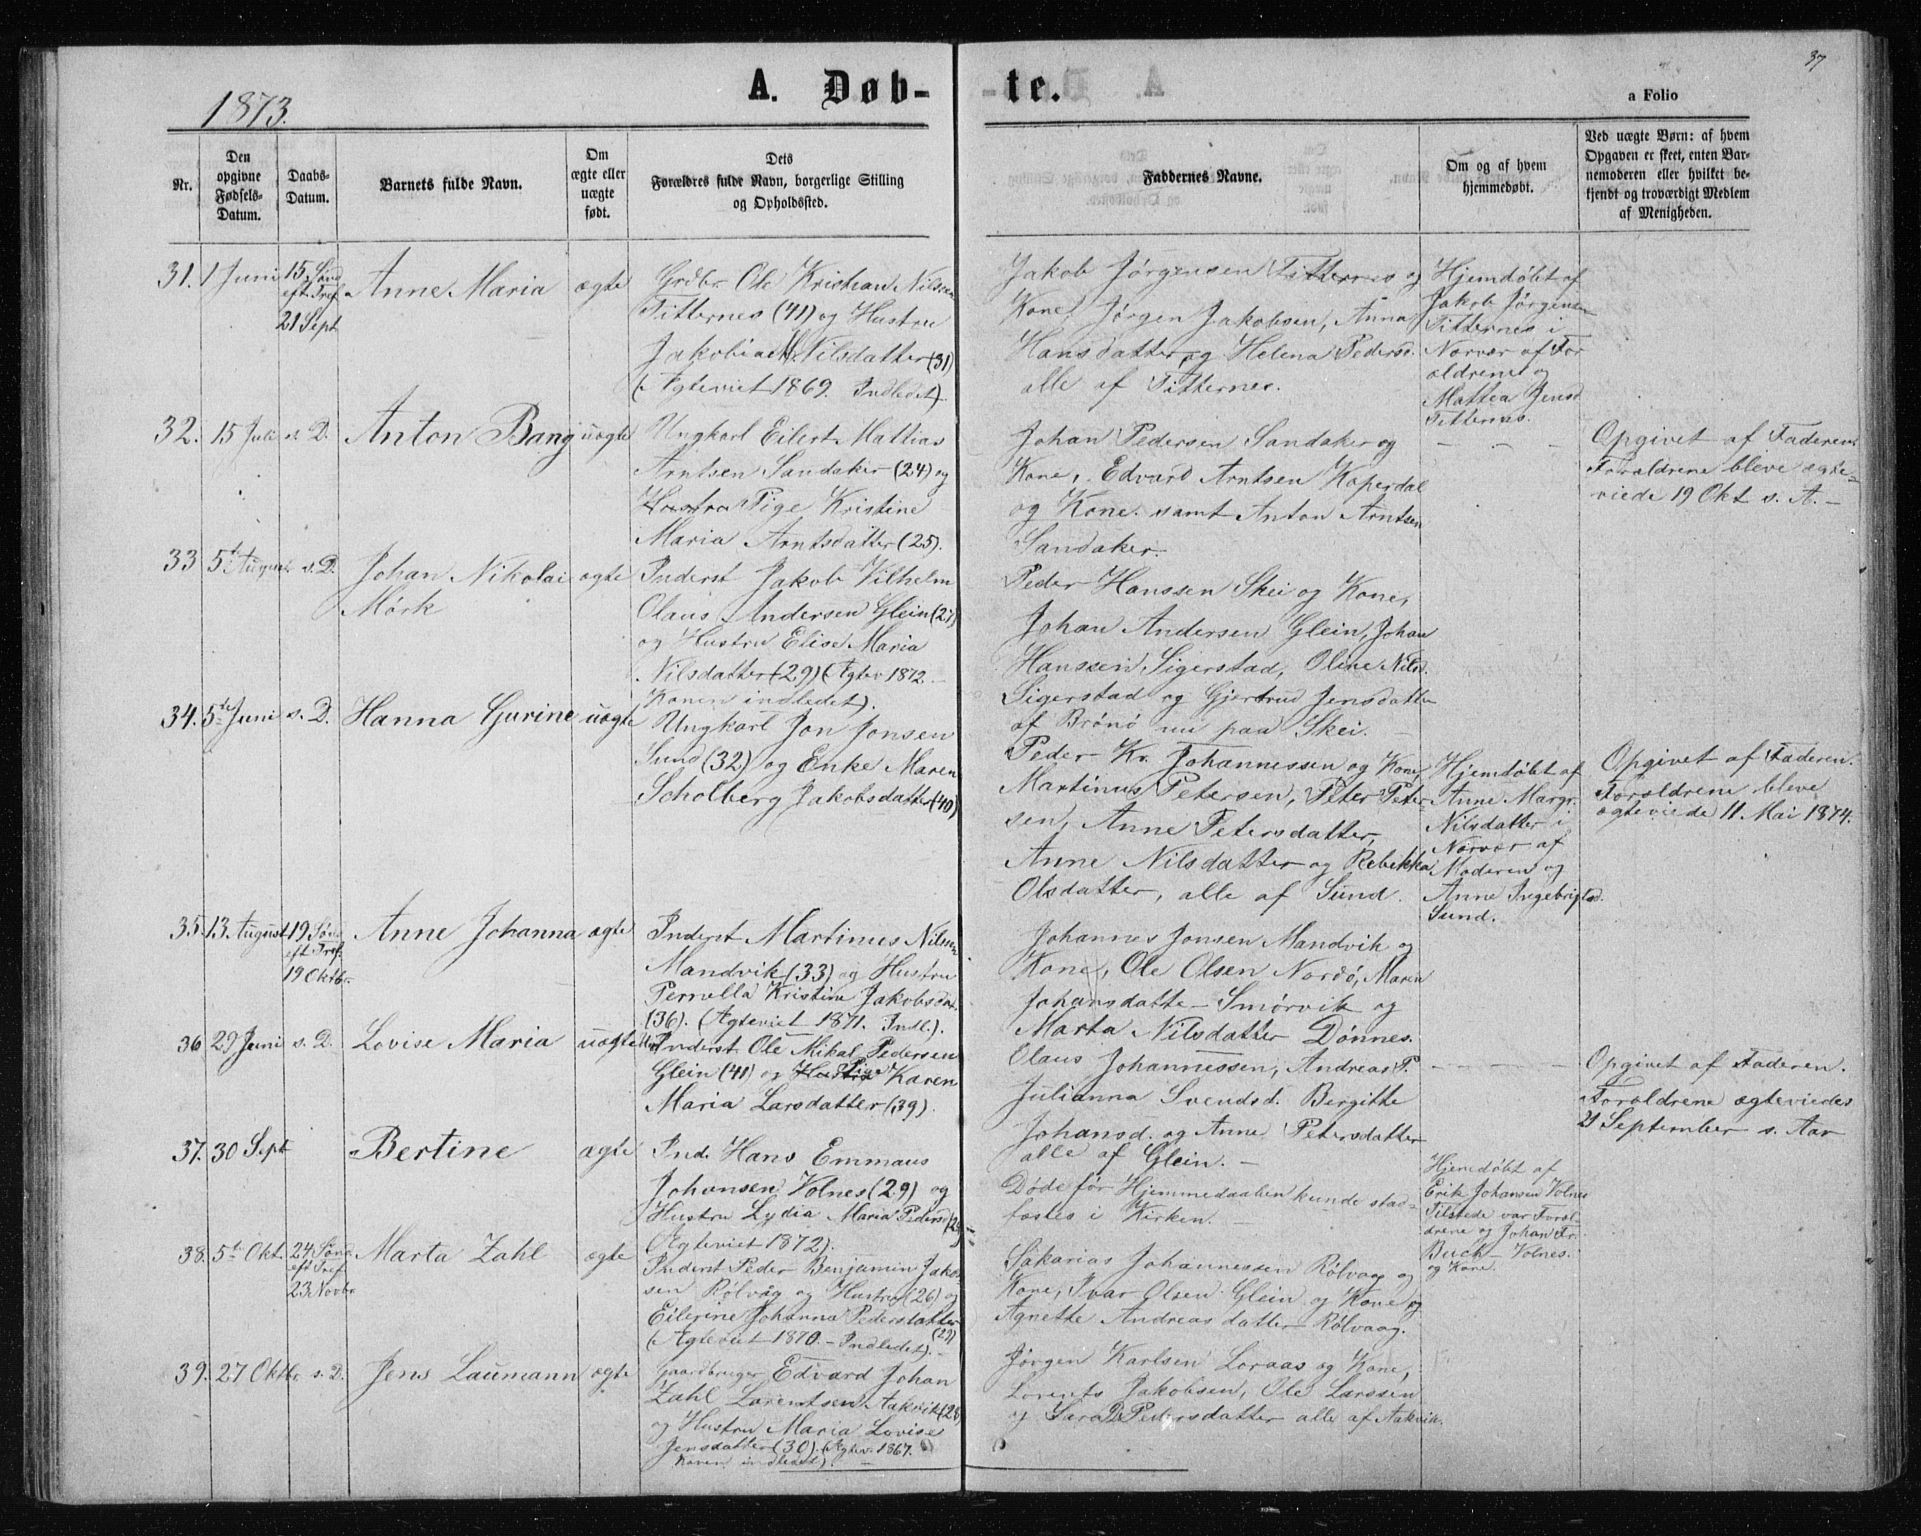 37
A. Døb-
te.
a Folio
1873.
Nr.
Den
opgivne
Fødsels-
Datum.
Daabs-
Datum.
Barnets fulde Navn.
Om
ægte eller
uægte
født.
Dets
Forældres fulde Navn, borgerlige Stilling
og Opholdssted.
Faddernes Navne.
Om og af hvem
hjemmedøbt.
Ved uægte Børn: af hvem
Opgaven er skeet, enten Bar-
nemoderen eller hvilket be-
kjendt og troværdigt Medlem
af Menigheden.
31. 1 Juni
15 Sønd
eft Tref
21 Sept
Anne Maria
ægte
Grdbr Ole Kristian Nilssen
Titternes (41) og Hustru
Jakobia Nilsdatter (31)
(Ægteviet 1869. Indledet).
Jakob Jørgensen Titternes og
Kone, Jørgen Jakobsen, Anna
Hansdatter og Helena Pedersd.
alle af Titternes.
Hjemdøbt af
Jakob Jørgensen
Titternes i
Nærvær af For
ældrene og
Mattea Jensd
Titternes.
32. 15 Juli s. D.
Anton Bang
uægte
Ungkarl Eilert Mattias
Arntsen Sandaker (24) og
Hustru Pige Kristine
Maria Arntsdatter (25).
Johan Pedersen Sandaker og
Kone, Edvard Arntsen Koperdal
og Kone. samt Anton Arntsen
Sandaker.
Opgivet af Faderen.
Forældrene bleve ægte-
viede 19 Okt s. A. -
33 5te August s. D.
Johan Nikolai
Mörk
ægte
Inderst Jakob Vilhelm
Olaus Andersen Glein (21)
og Hustru Elise Maria
Nilsdatter (29) (Ægtev 1872. -
Konen indledet).
Peder Hanssen Skei og Kone,
Johan Andersen Glein, Johan
Hanssen Sigerstad, Oline Nilsd.
Sigerstad og Gjertrud Jensdatter
af Brönö nu paa Skei. -
34. 5te Juni s. D.
Hanna Gurine
uægte
Ungkarl Jon Jonsen
Sund (32) og Enke Maren
Scholberg Jakobsdatter (40)
Peder Kr. Johannessen og Kone,
Martinus Petersen, Peter Peter-
sen, Anne Petersdatter,
Anne Nilsdatter og Rebekka
Olsdatter, alle af Sund.
Hjemdøbt af
Anne Margr.
Nilsdatter i
Nærvær af
Moderen og
Anne Ingebrigtsd.
Sund.
Opgivet af Faderen.
Forældrene bleve
ægteviede 11. Mai 1874.
35. 13 August
19 Sønd
eft Tref.
19 Oktbr.
Anne Johanna
ægte
Inderst Martinus Nilssen
Mandvik (33) og Hustru
Pernella Kristine Jakobsdat.
(36). (Ægteviet 1871. Indl).
Johannes Jonsen Mandvik og
Kone, Ole Olsen Nordö, Maren
Johansdatter Smörvik og
Marta Nilsdatter Dönnes.
36 29 Juni s. D.
Lovise Maria
uægte
Inderst Ole Mikal Pedersen
Glein (41) og Hustru Pige Karen
Maria Larsdatter (39).
Elaus Johannessen, Andreas P.
Julianna Svendsd. Bergitte
Johansd. og Anne Petersdatter
alle af Glein. -
Opgivet af Faderen.
Forældrene ægteviedes
21 September s. Aar
37. 30 Sept
Bertine
ægte
Ind. Hans Emmaus
Johansen Volnes (29) og
Hustru Lydia Maria Pedersd (29)
(Ægteviet 1872).
Døde før Hjemmedaaben kunde stad-
fæstes i Kirken. -
Hjemdøbt af
Erik Johansen Volnes
Tilstede var Foræl-
drene og Johan Fr.
Buch Volnes.
og Kone.
38. 5te Okt.
24 Sønd
eft Tref
23 Novbr
Marta Zahl
ægte
Inderst Peder Benjamin Jakob-
sen Rölvåg og Hustru (26) og
Eilerine Johanna Pedersdatter
(Ægteviet 1870. - Indledet). (29)
Sakarias Johannessen Rölvaag og
Kone, Ivar Olsen Glein og Kone og
Agnette Andreasdatter Rölvaag.
39. 27 Oktbr s. D.
Jens Laumann
ægte
Gaardbruger Edvard Johan
Zahl Lorentsen Aakvik (28)
og Hustru Maria Lovise
Jensdatter (30). (Ægtev. 1867.
Konen indledet). -
Jørgen Karlsen Loraas og Kone,
Lorents Jakobsen, Ole Larssen
og Sara P Pedersdatter alle af Aakvik.